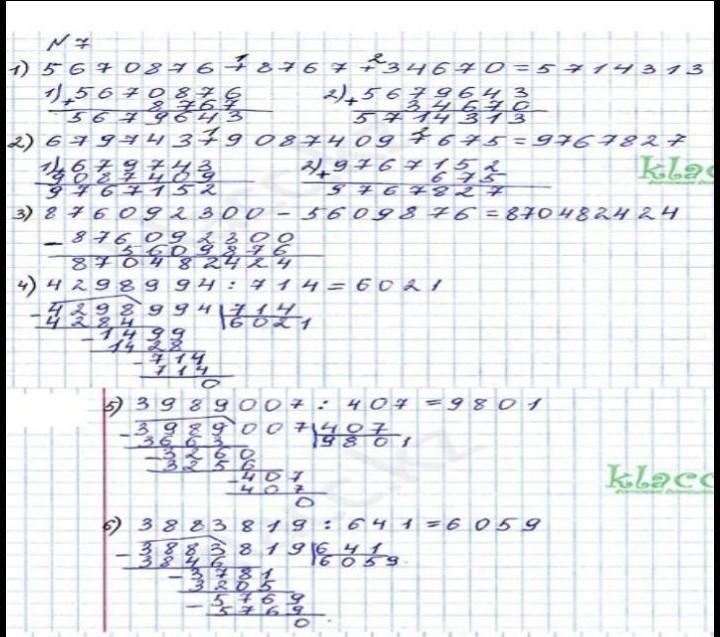 N 7
1) 5670876 + 8767 + 34670 = 5714313
1) 5670876 2) 5679643
+ 8767 + 34670
5679643 5714313
2) 679743 + 9087409 + 675 = 9767827
1) 679743 2) 9767152
9087409 + 675
9767152 5767827
3) 876092300 - 5609876 = 870482424
- 876092300
5609876
870482424
4) 4298994 : 714 = 6021
- 4298994 | 714
4284 6021
- 1499
1428
- 714
714
0
5) 3989007 : 407 = 9801
- 3989007 | 407
3663 9801
- 3260
3256
- 407
407
0
6) 3883819 : 641 = 6059
- 3883819 | 641
3846 6059
- 3781
3205
- 5769
5769
0